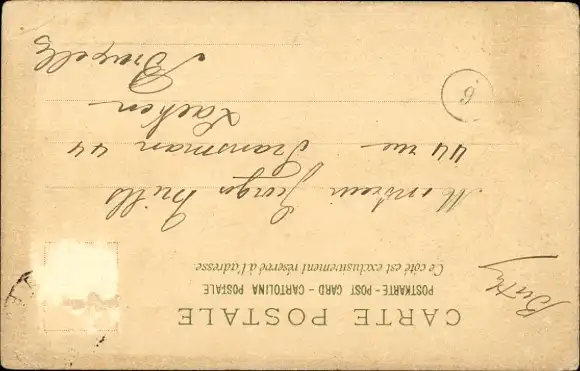 CARTE POSTALE
POSTKARTE - POST CARD - CARTOLINA POSTALE
Ce côté est exclusivement réservé à l'adresse.
Monsieur Georges
44 rue Fransman 44
Laeken
Bruxelles
6